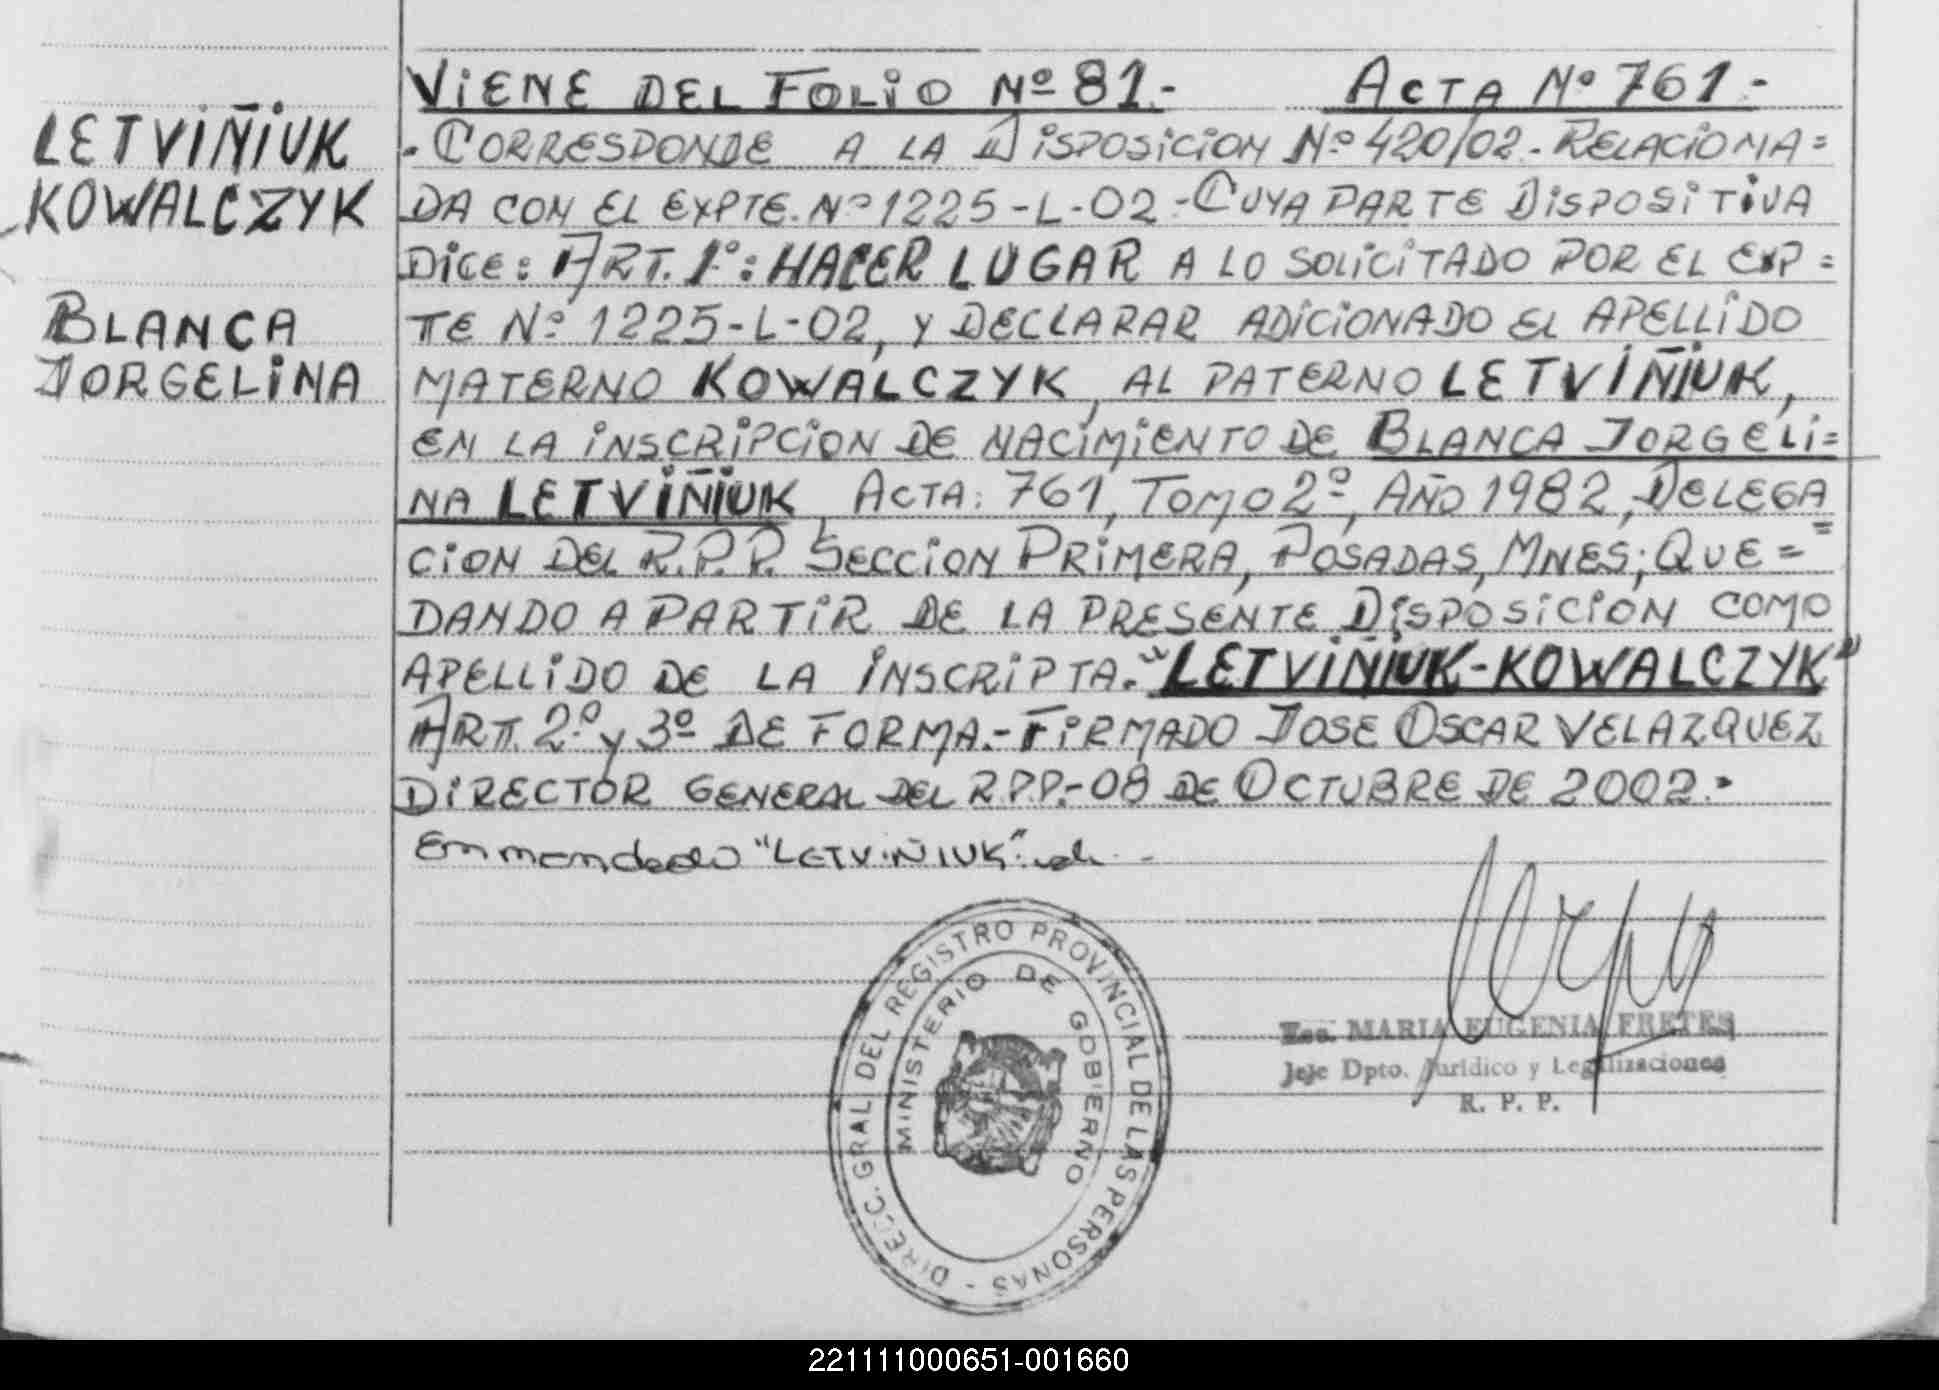 LETVIÑIUK
KOWALCZYK
BLANCA
JORGELINA
VIENE DEL FOLIO Nº 81.- ACTA Nº 761.-
.CORRESPONDE A LA DISPOSICION Nº 420/02.- RELACIONA=
DA CON EL EXPTE. Nº 1225-L-02.- CUYA PARTE DISPOSITIVA
DICE: ART. 1º: HACER LUGAR A LO SOLICITADO POR EL EXP=
TE Nº 1225-L-02, Y DECLARAR ADICIONADO EL APELLIDO
MATERNO KOWALCZYK, AL PATERNO LETVIÑIUK,
EN LA INSCRIPCION DE NACIMIENTO DE BLANCA JORGELI=
NA LETVIÑIUK, ACTA: 761, TOMO 2º, AÑO 1982, DELEGA=
CION DEL R.P.P. SECCION PRIMERA, POSADAS, MNES; QUE=
DANDO A PARTIR DE LA PRESENTE DISPOSICION COMO
APELLIDO DE LA INSCRIPTA. "LETVIÑIUK-KOWALCZYK"
ART. 2º Y 3º DE FORMA.- FIRMADO JOSE OSCAR VELAZQUEZ
DIRECTOR GENERAL DEL R.P.P.- 08 DE OCTUBRE DE 2002.-
Enmendado "LETVIÑIUK": vale.-
DIRECC. GRAL DEL REGISTRO PROVINCIAL DE LAS PERSONAS -
MINISTERIO DE GOBIERNO
MARIA EUGENIA FRETES
Jefe Dpto. Jurídico y Legalizaciones
R. P. P.
221111000651-001660